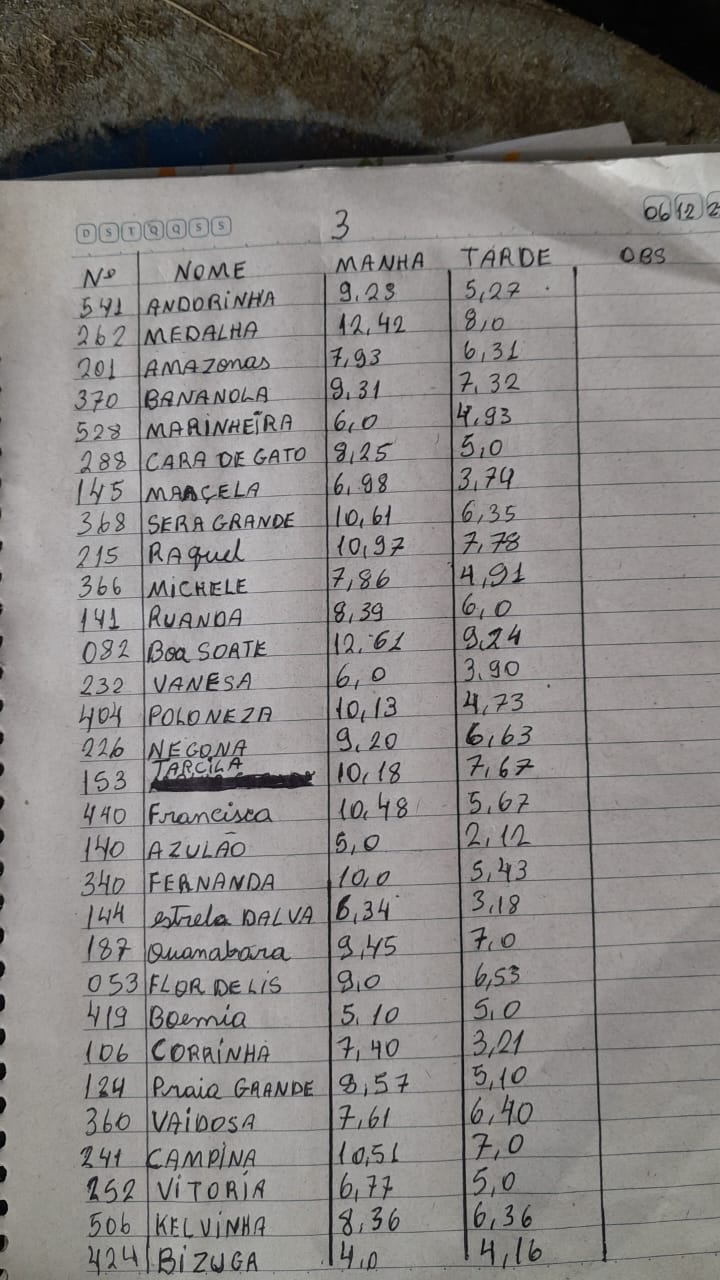 D S T Q Q S S 3 06 12 2
Nº NOME MANHA TARDE OBS
541 ANDORINHA 9,23 5,27
262 MEDALHA 12,42 8,0
201 AMAZONAS 7,93 6,31
370 BANANOLA 9,31 7,32
528 MARINHEIRA 6,0 4,93
288 CARA DE GATO 8,25 5,0
145 MARÇELA 6,98 3,74
368 SERA GRANDE 10,61 6,35
215 RAquel 10,97 7,78
366 MiCHELE 7,86 4,91
141 RUANDA 8,39 6,0
082 Boa SORTE 12,61 9,24
232 VANESA 6,0 3,90
404 POLONEZA 10,13 4,73
226 NEGONA 9,20 6,63
153 TARCiLA 10,18 7,67
440 Francisca 10,48 5,67
140 AZULÃO 5,0 2,12
340 FERNANDA 10,0 5,43
144 estrela DALVA 6,34 3,18
187 Guanabara 9,45 7,0
053 FLOR DE LIS 9,0 6,53
419 Boemia 5,10 5,0
106 CORRINHA 7,40 3,21
124 Praia GRANDE 8,57 5,10
360 VAiDOSA 7,61 6,40
241 CAMPINA 10,51 7,0
252 VITORIA 6,77 5,0
506 KELVINHA 8,36 6,36
424 BiZUGA 4,0 4,16